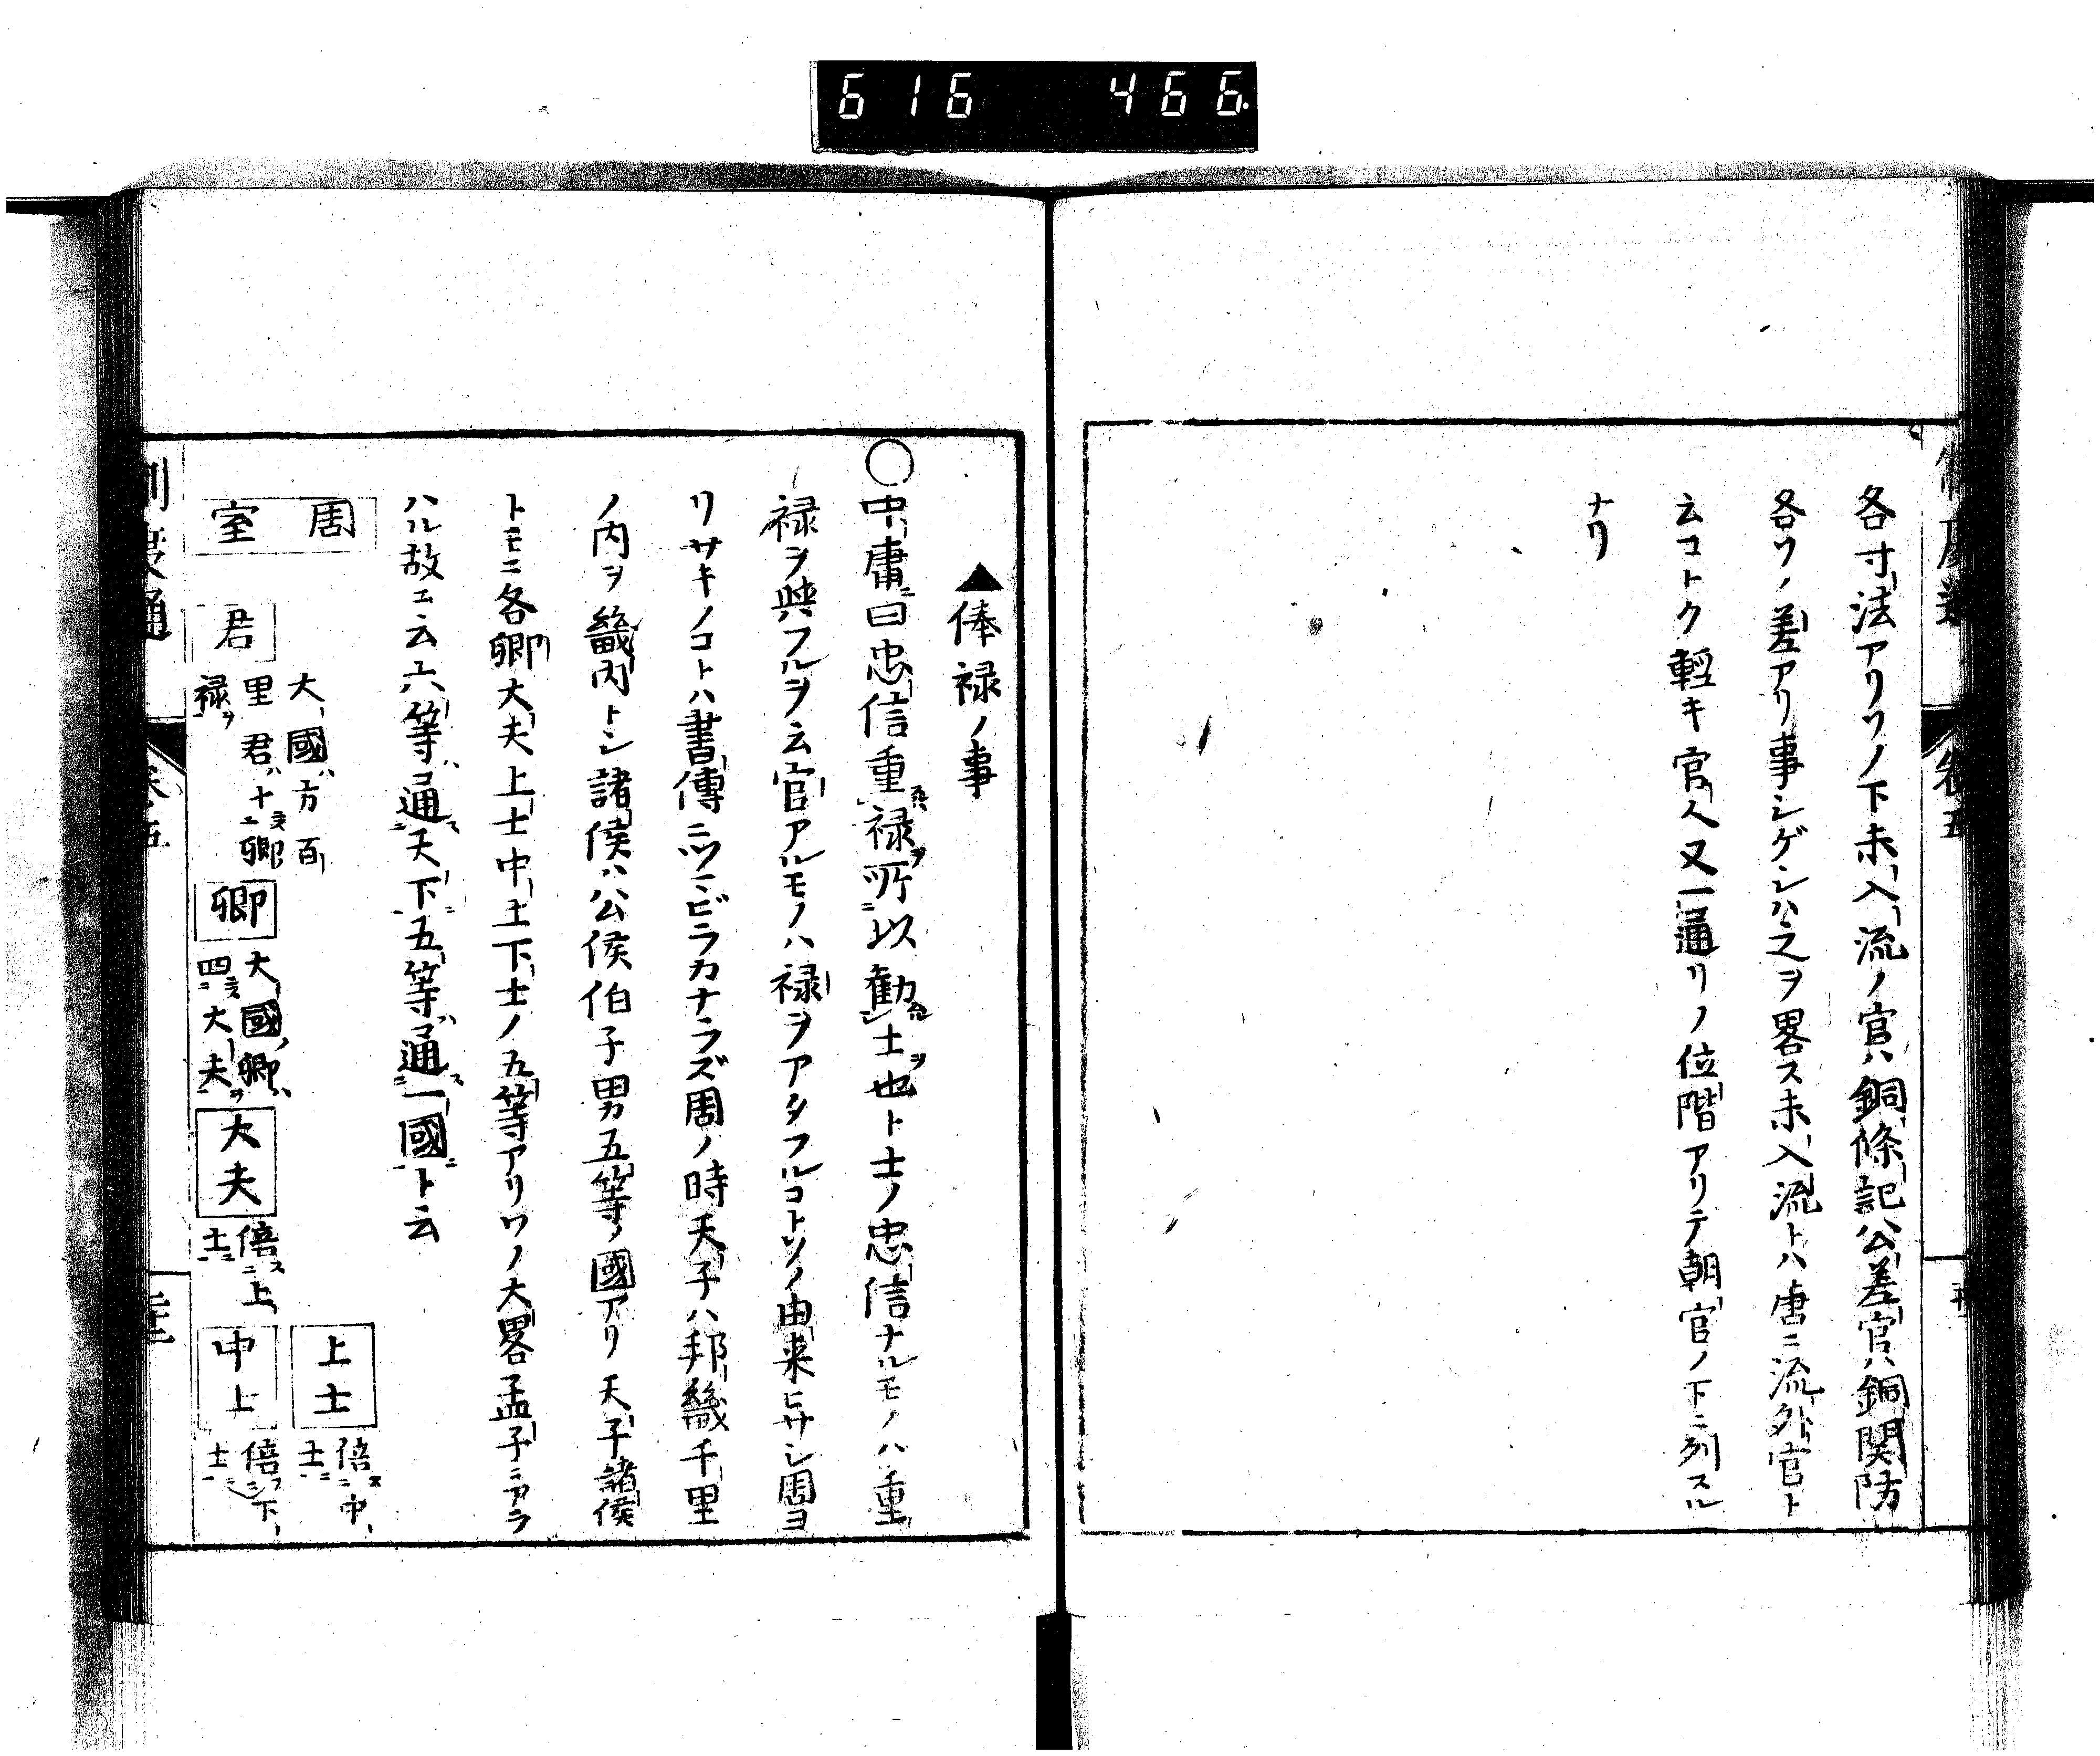 616 466
各寸法アリソノ下未入流ノ官ハ銅條記公差官ハ銅関防
各ソノ差アリ事シゲシハ之ヲ畧ス未入流トハ唐ニ流外官ト
云コトク輕キ官人又一通リノ位階アリテ朝官ノ下ニ列スル
ナリ
▲俸禄ノ事
○中庸曰忠信重禄所以勸士也ト士ノ忠信ナルモノハ重
禄ヲ與フルヲ云官アルモノハ禄ヲアタフルコトソノ由来ヒサシ周ヨ
リサキノコトハ書傳ニツマビラカナラズ周ノ時天子ハ邦畿千里
ノ内ヲ畿内トシ諸侯ハ公侯伯子男五等ノ國アリ天子諸侯
トモニ各卿大夫上士中士下士ノ五等アリソノ大畧孟子ニアラ
ハル故エ云六等ハ通天下ニ五等ハ通一國ニト云
周室
君
大國ハ方百
里君ハ十ニス卿
禄ヲ
卿
大國ノ卿ハ
四ニス大夫ヲ
大夫
倍ス上
士ニ
上士
倍ス中
士ニ
中士
倍ス下
士ニ
制度通
卷五